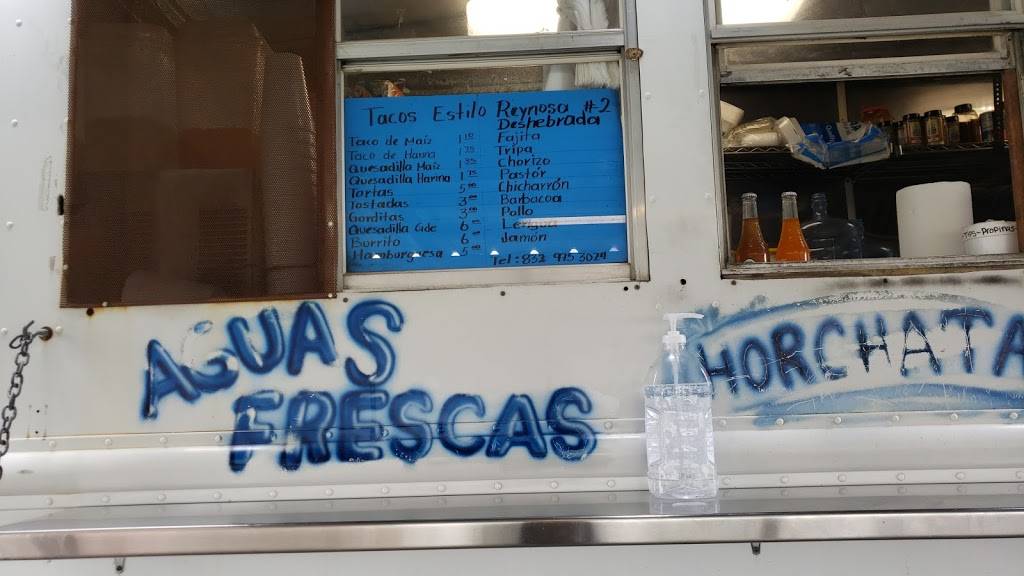 Tacos Estilo Reynosa #2
Deshebrada
Taco de Maiz 1
Fajita
Taco de Harina 1
Tripa
Quesadilla Maiz 1
Chorizo
Quesadilla Harina 1 75
Pastór
Tortas 5
Chicharrón
Tostadas 3
Barbacoa
Gorditas 3
Pollo
Quesadilla Gde 6
Lengua
Burrito 6
Jamón
Hamburguesa 5
Tel: 832 975 3024
Tips-Propinas
AGUAS
FRESCAS
HORCHATA